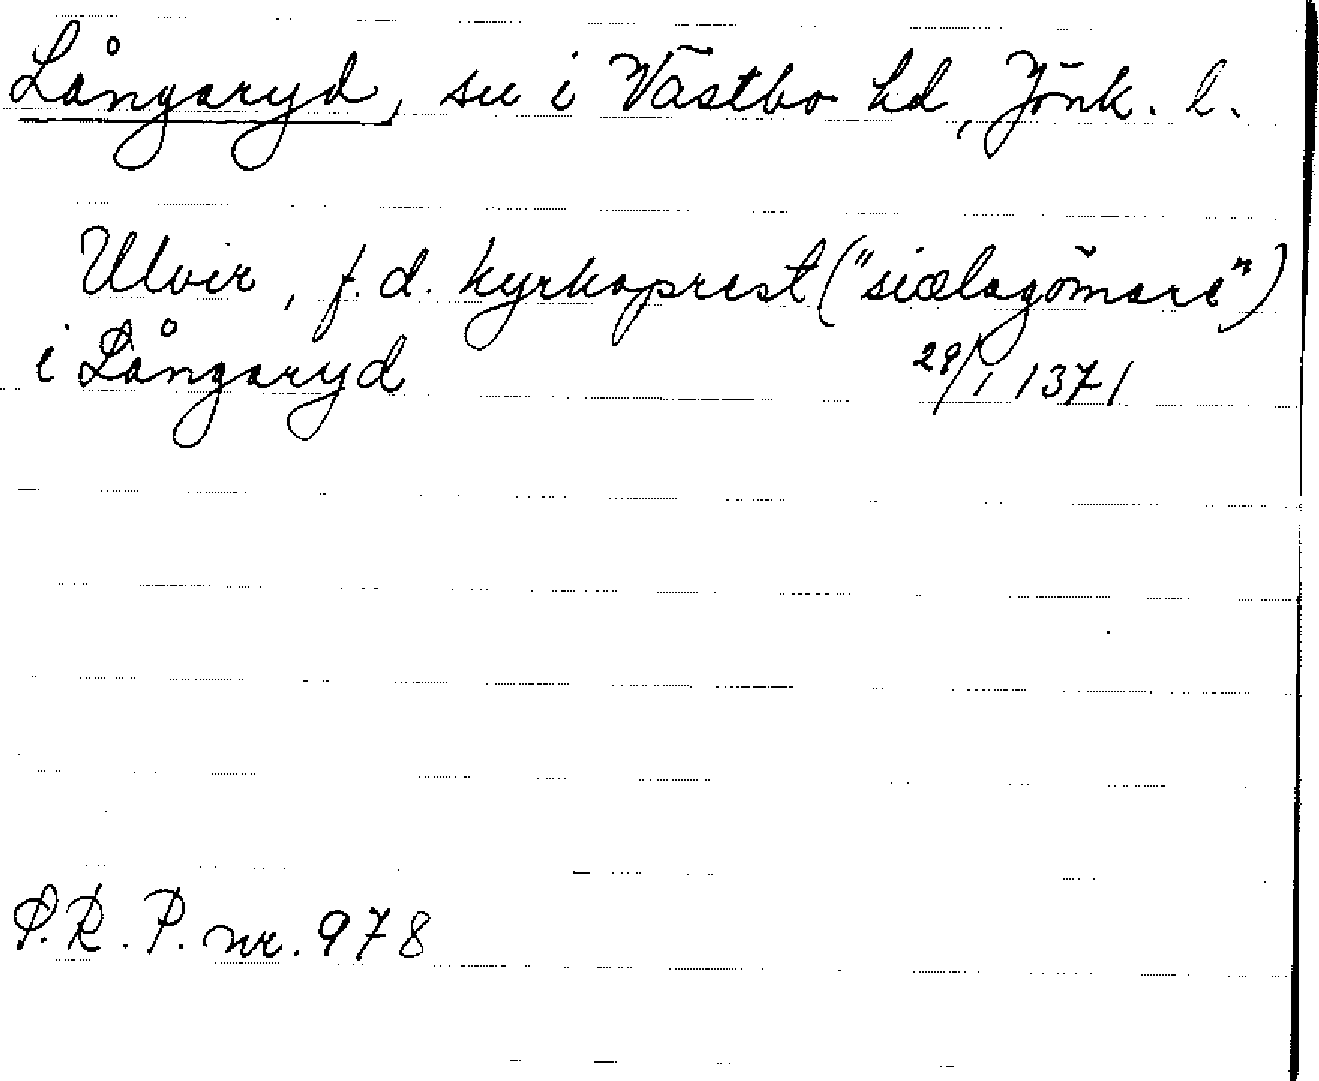 Långaryd, sn i Västbo hd, Jönk. l.
Ulvir, f.d. kyrkoprest ("siælagömare")
i Långaryd 28/1 1371
P.R.P. nr. 978